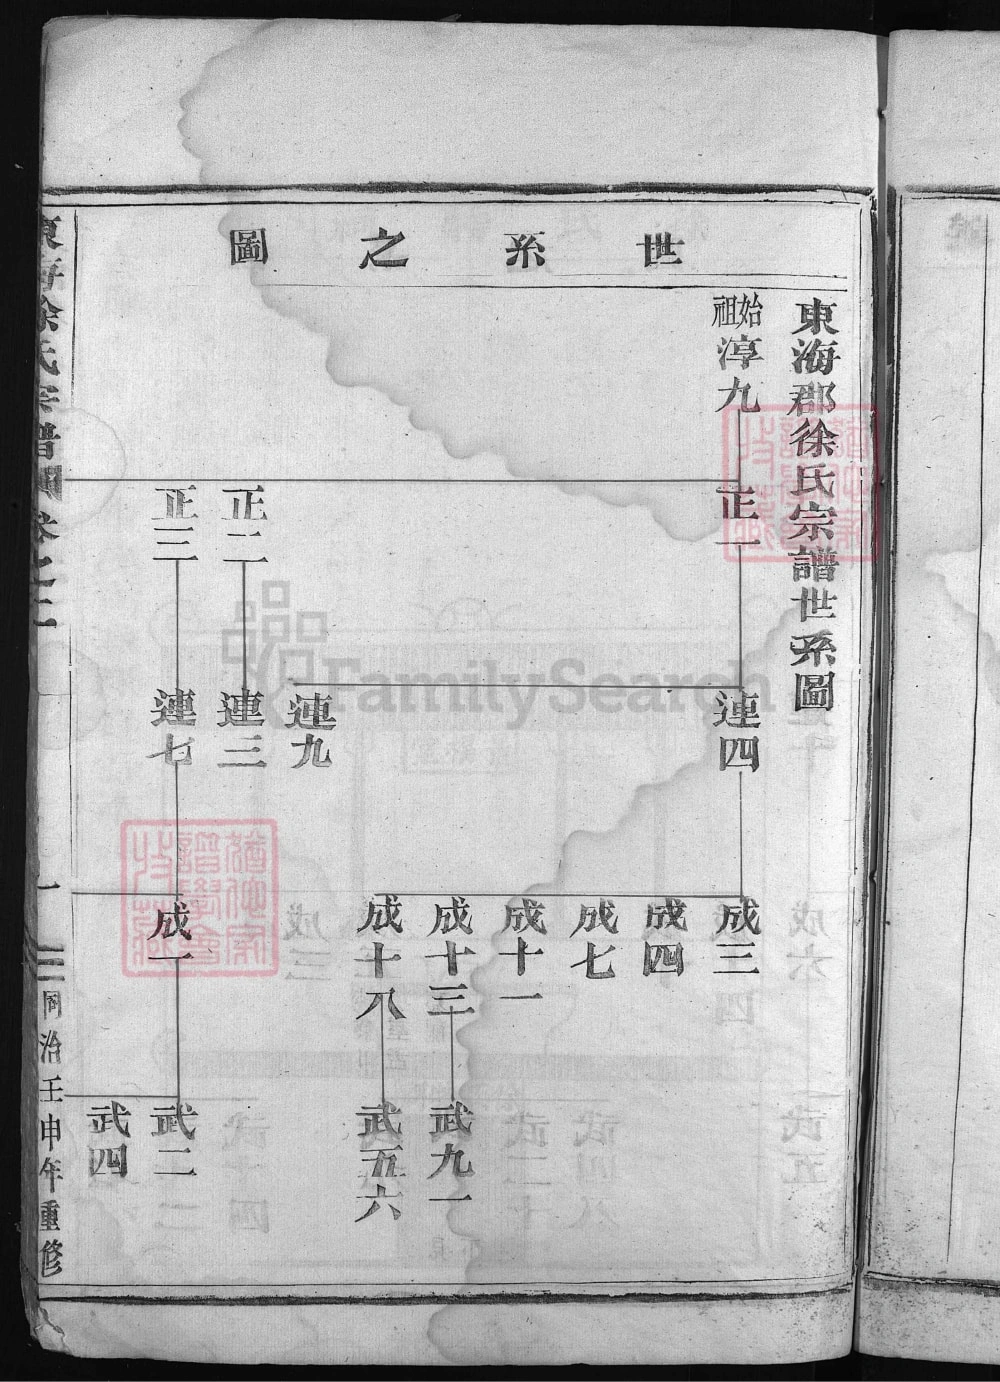 世系之圖
東海郡徐氏宗譜世系圖
始祖淳九
正一
正二
正三
連四
連九
連三
連七
成三
成四
成七
成十一
成十三
成十八
成一
武九一
武五六
武二
武四
東海徐氏宗譜
卷之二
一
同治壬申年重修
FamilySearch